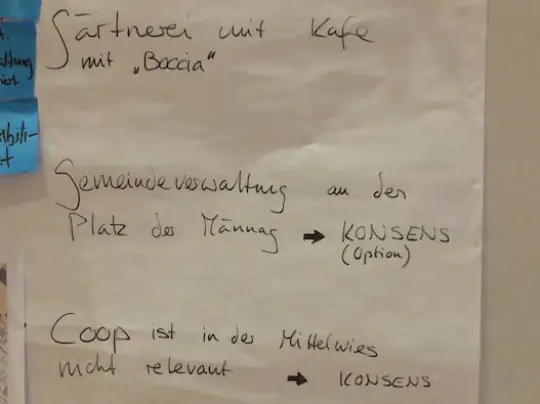 Gärtnerei mit Kafe
mit „Boccia“
Gemeindeverwaltung an den
Platz der Männag → KONSENS
(Option)
Coop ist in der Mittelwies
nicht relevant → KONSENS